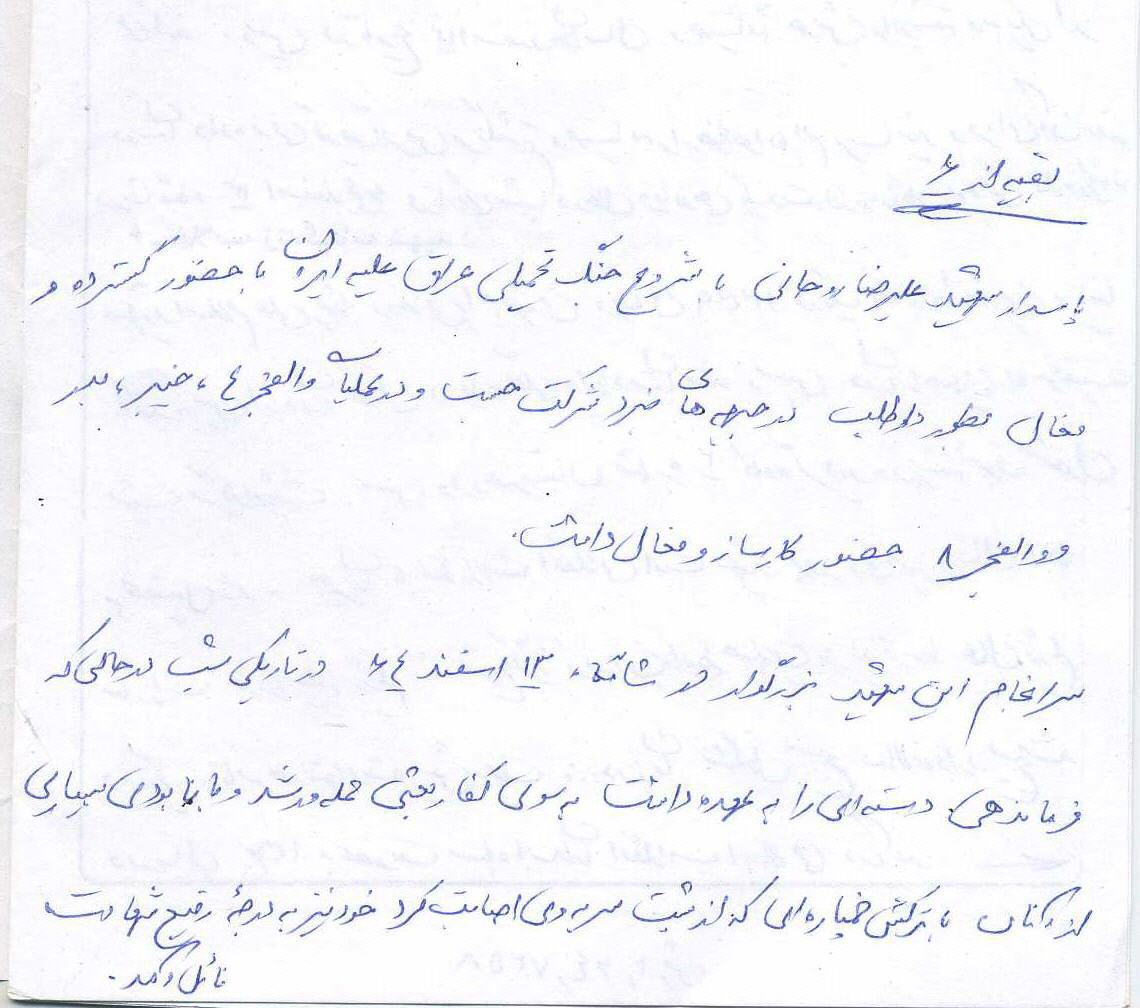 بقیه از ۶
پاسدار شهید علیرضا روحانی با شروع جنگ تحمیلی عراق علیه ایران با حضور گسترده و
فعال بطور داوطلب در جبهه های نبرد شرکت جست و در عملیات والفجر ۴ ، خیبر ، بدر
و والفجر ۸ حضور کارساز و فعال داشت.
سرانجام این شهید بزرگوار در ۱۳ اسفند ۶۴ در تاریکی شب در حالی که
فرماندهی دسته ای را به عهده داشت به سوی کفار بعثی حمله ور شد و با نابودی بسیاری
از آنان با ترکش خمپاره ای که از پشت سر به وی اصابت کرد خود نیز به درجهٔ رفیع شهادت
نائل آمد.